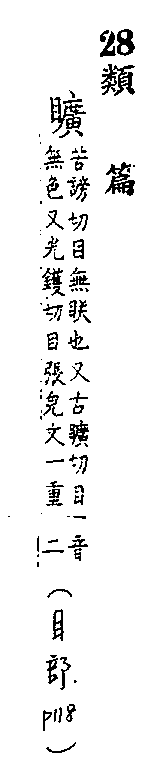 28 類篇
矌
苦謗切目無眹也又古曠切目
無色又光鑊切目張皃文一重
音
二
(目部. p118)